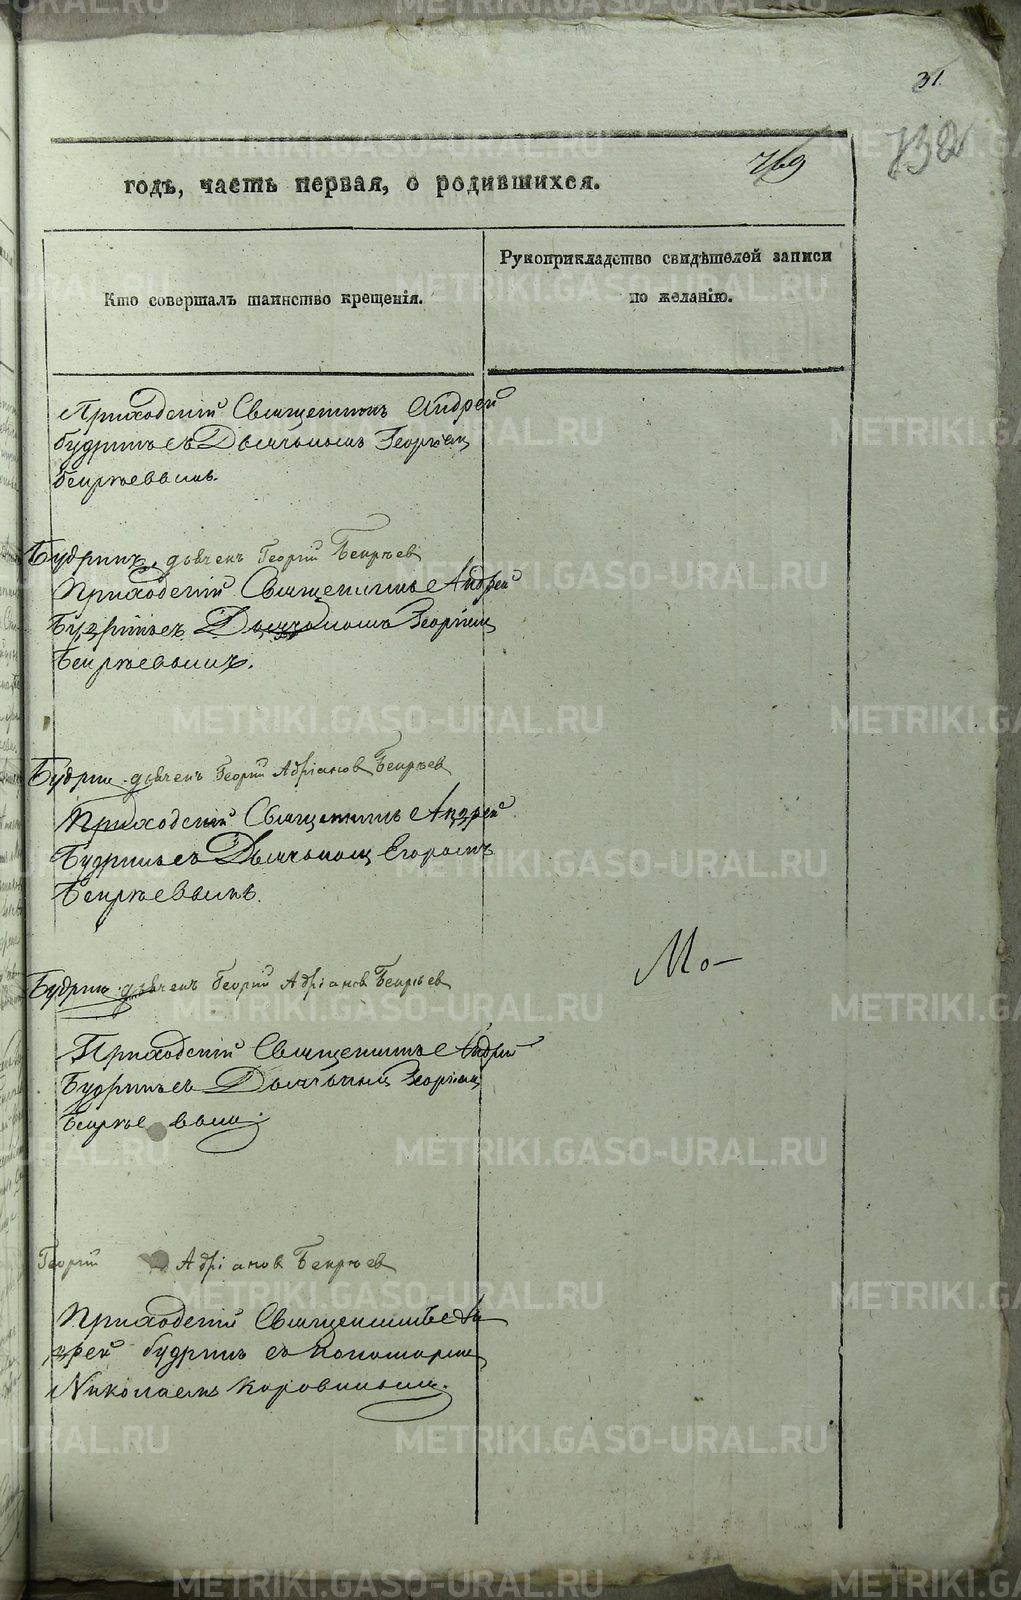 31.
769
732
годъ, часть первая, о родившихся.
Кто совершалъ таинство крещенія.
Рукоприкладство свидѣтелей записи
по желанію.
Приходскій Священникъ Андрей
Будринъ съ Дьячькомъ Георгіем
Бепрѣевымъ.
Будринъ, дьячекъ Георгій Бепрѣев
Приходскій Священникъ Андрей
Будринъ съ Дьячкомъ Георгіем
Бепрѣевымъ.
Будрин дьячекъ Георгій Адріанов Бепрѣев
Приходскій Священникъ Андрей
Будринъ съ Дьячькомъ Егоромъ
Бепрѣевымъ.
Будрин дьячекъ Георгій Адріанов Бепрѣев
Мо-
Приходскій Священникъ Андрей
Будринъ съ Дьячькомъ Георгіем
Бепрѣевым.
Георгій Адріанов Бепрѣев
Приходскій Священникъ Ан
дрей Будринъ съ Пономарем
Николаемъ Коровиным.
METRIKI.GASO-URAL.RU